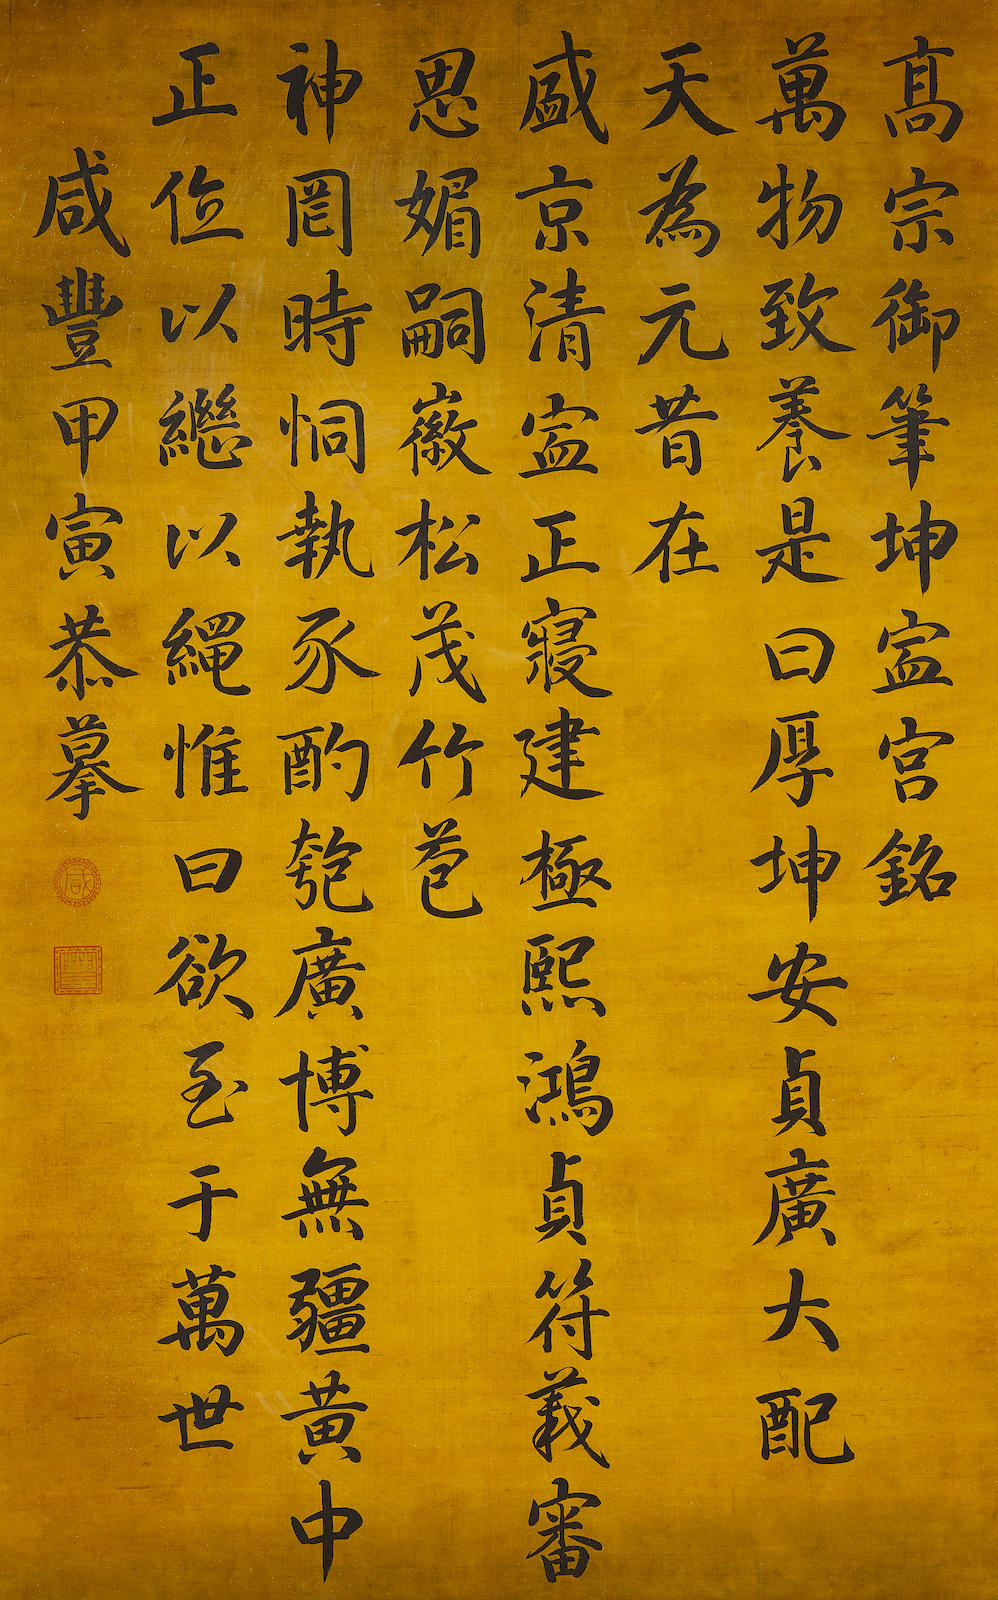 髙宗御筆坤寍宮銘
萬物致養是曰厚坤安貞廣大配
天為元昔在
盛京清寍正寢建極熙鴻貞符義審
思媚嗣徽松茂竹苞
神罔時恫執豕酌匏廣博無疆黃中
正位以繼以繩惟曰欲至于萬世
咸豐甲寅恭摹
咸